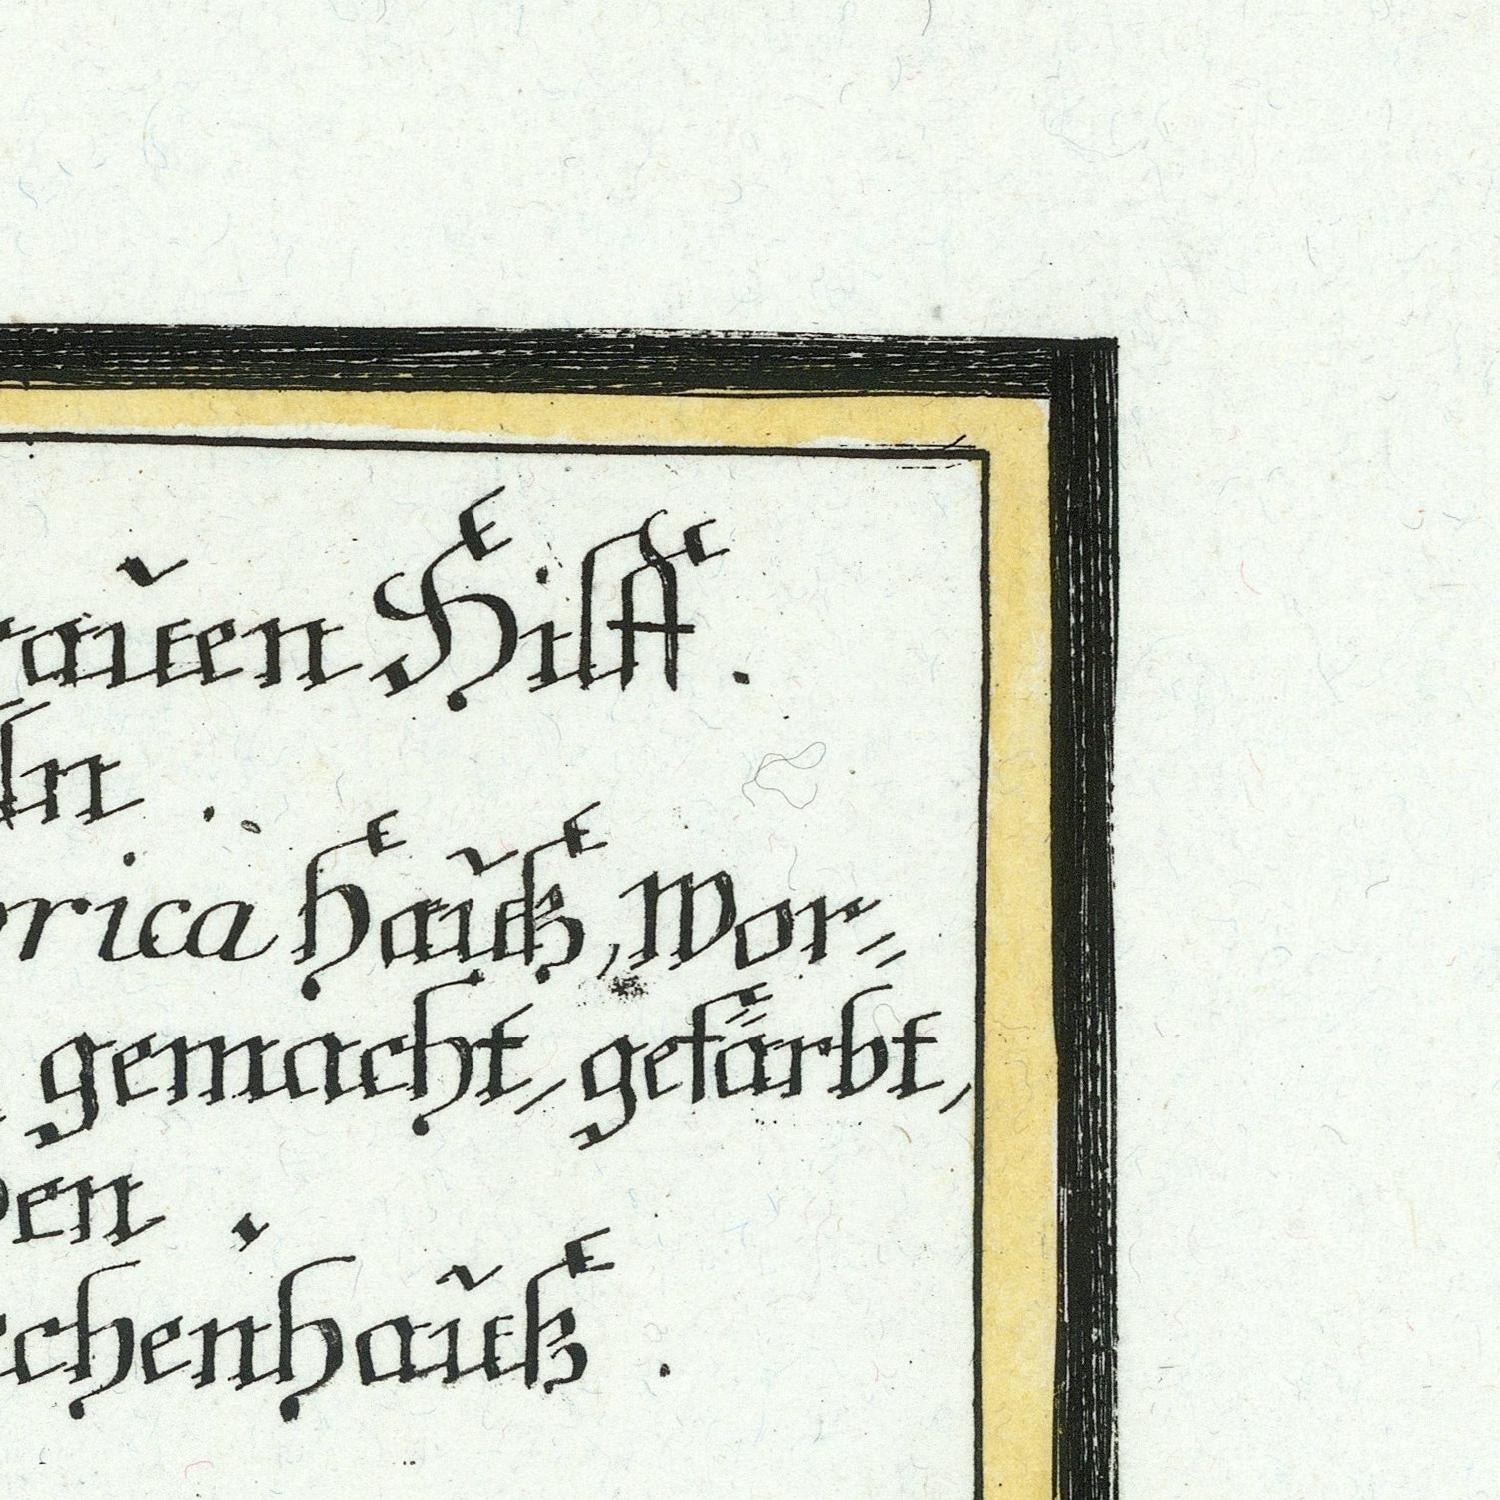 rauen Hilff.
ln.
rica hauß, Wor-
gemacht, gefärbt,
en.
chenhauß.